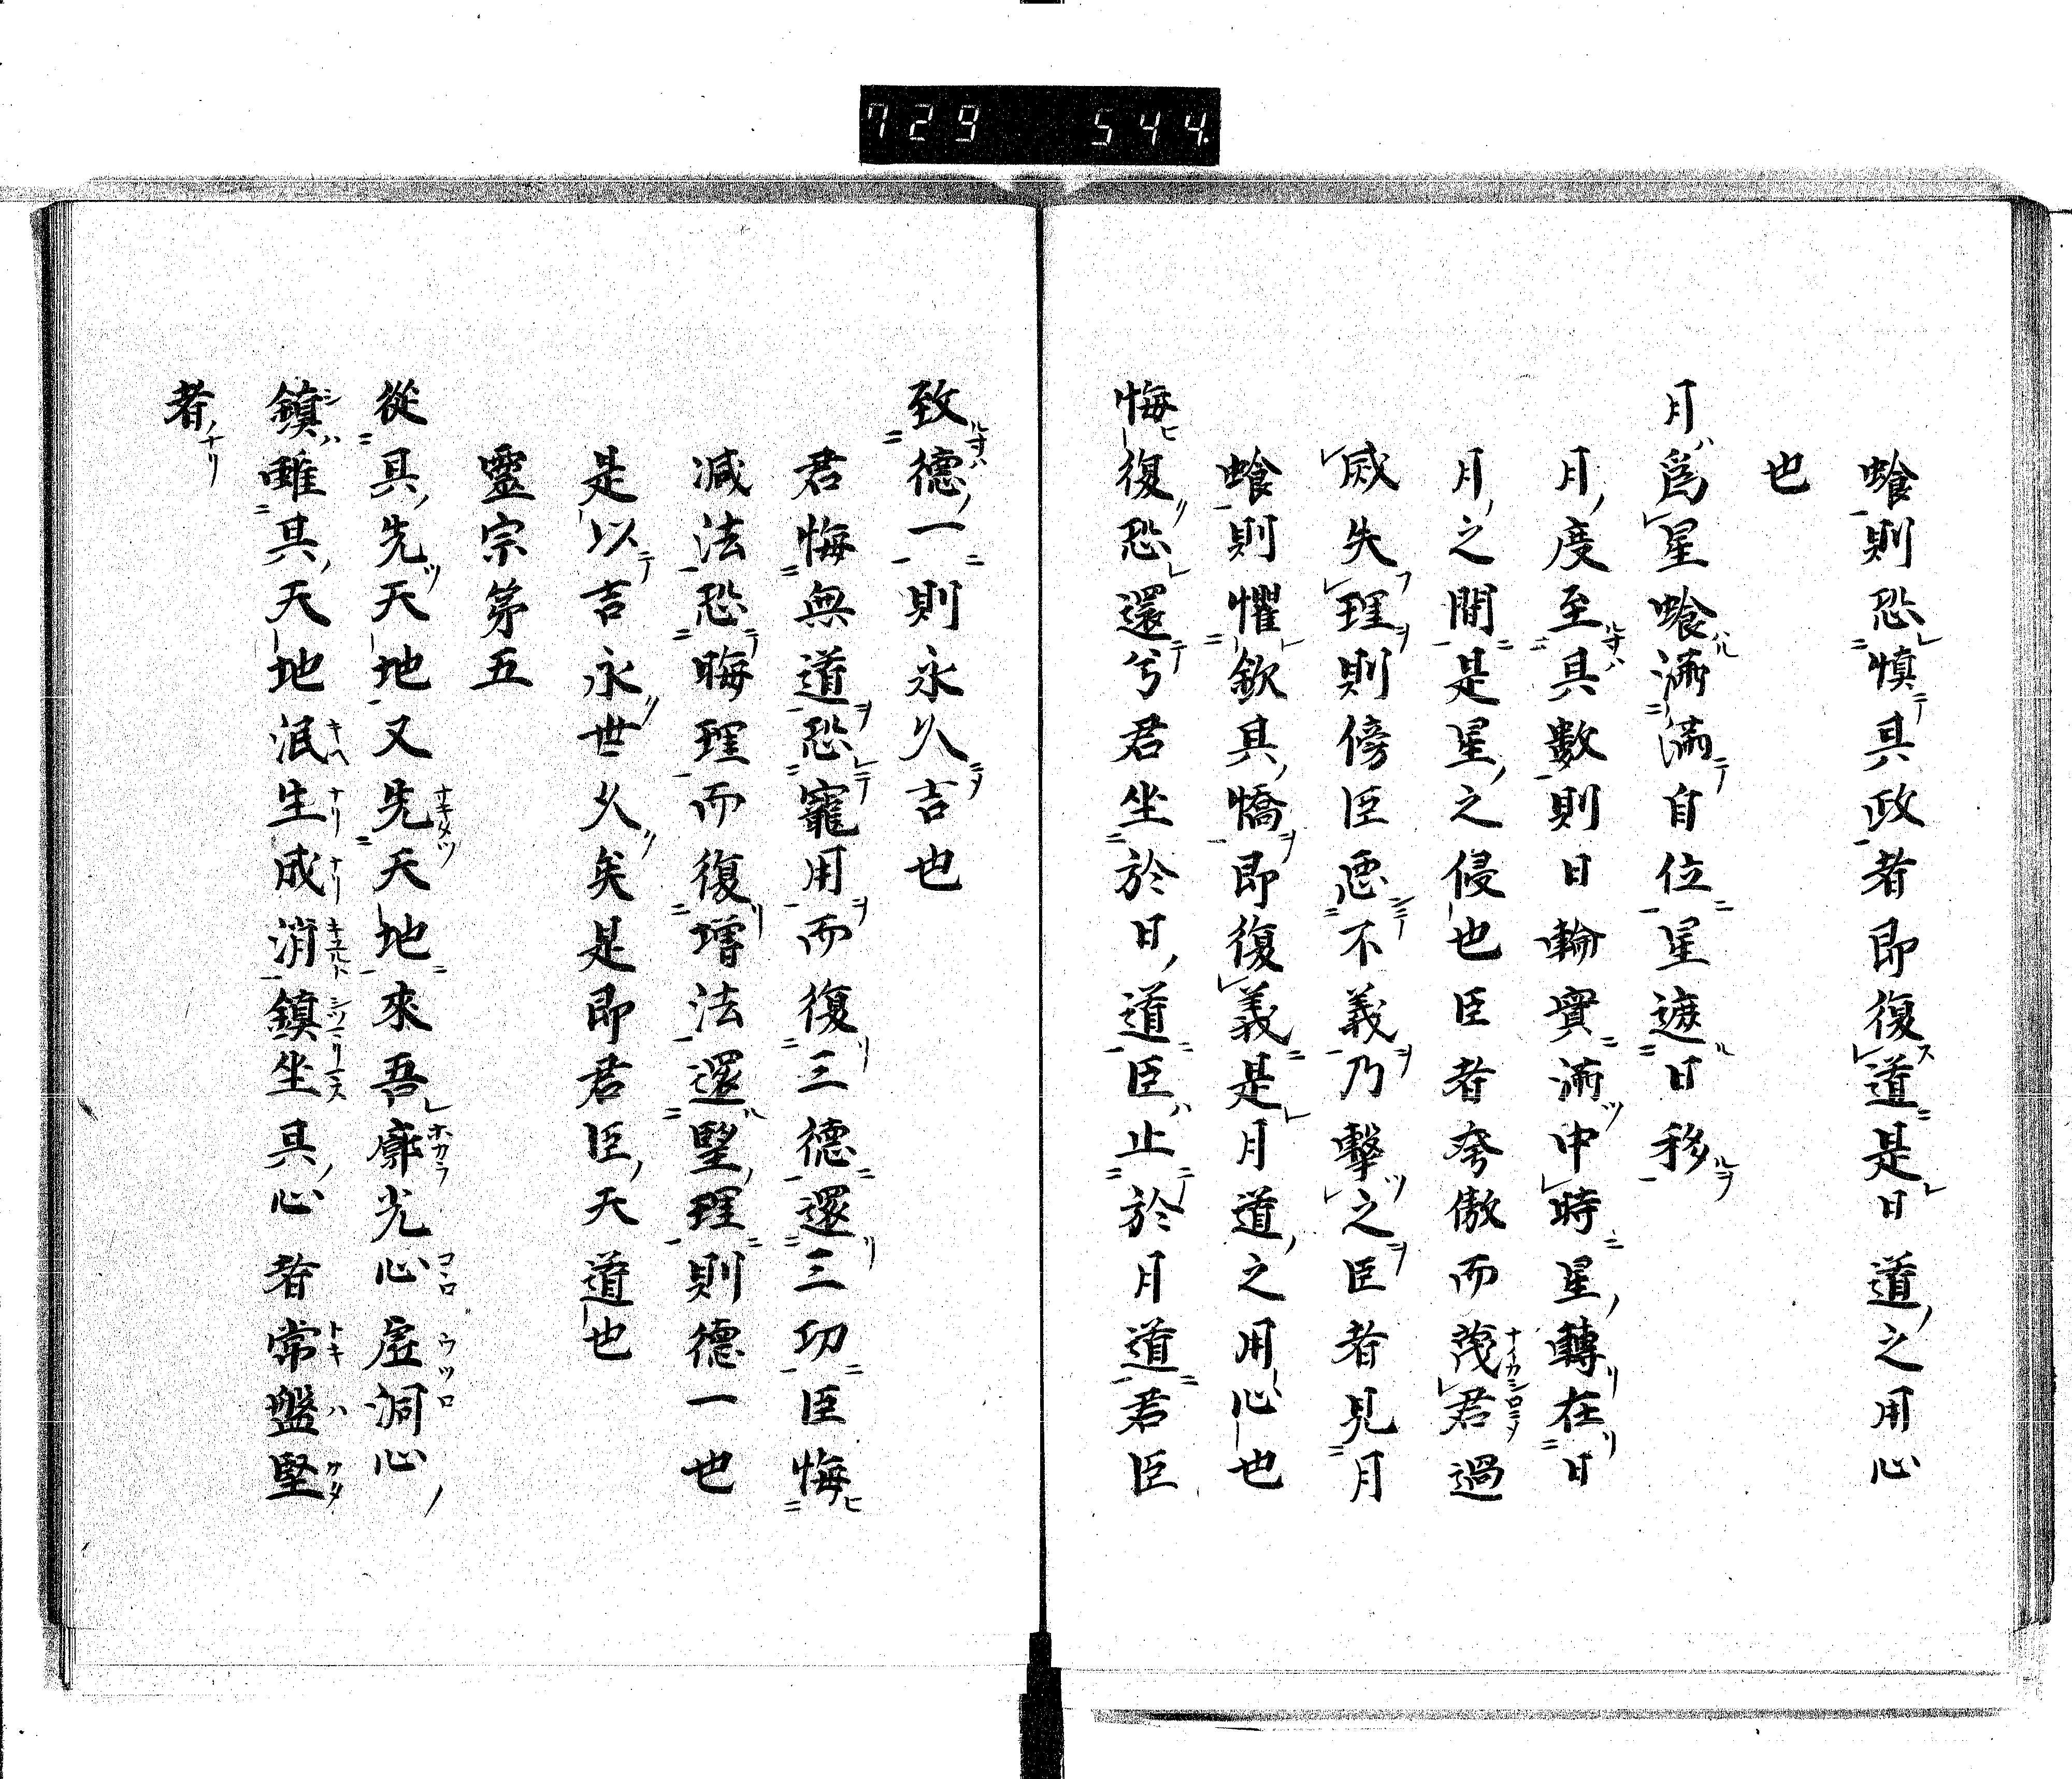 729 544
蝕則恐慎其政者即復道是日道之用心
也
月為星蝕滿滿自位星遮日移
月度至其數則日輪實滿中時星轉在日
月之間是星之侵也臣者夸傲而蔑君過
威失理則傍臣惡不義乃擊之臣者見月
蝕則懼欽其憍即復義是月道之用心也
悔復恐還兮君坐於日道臣止於月道君臣
致德一則永久吉也
君悔無道恐寵用而復三德還三功臣悔
減法恐晦理而復增法還堅理則德一也
是以吉永世久矣是即君臣天道也
靈宗第五
從其先天地又先天地來吾廓光心虛洞心
鎮雖其天地泯生成消鎮坐其心者常盤堅
者